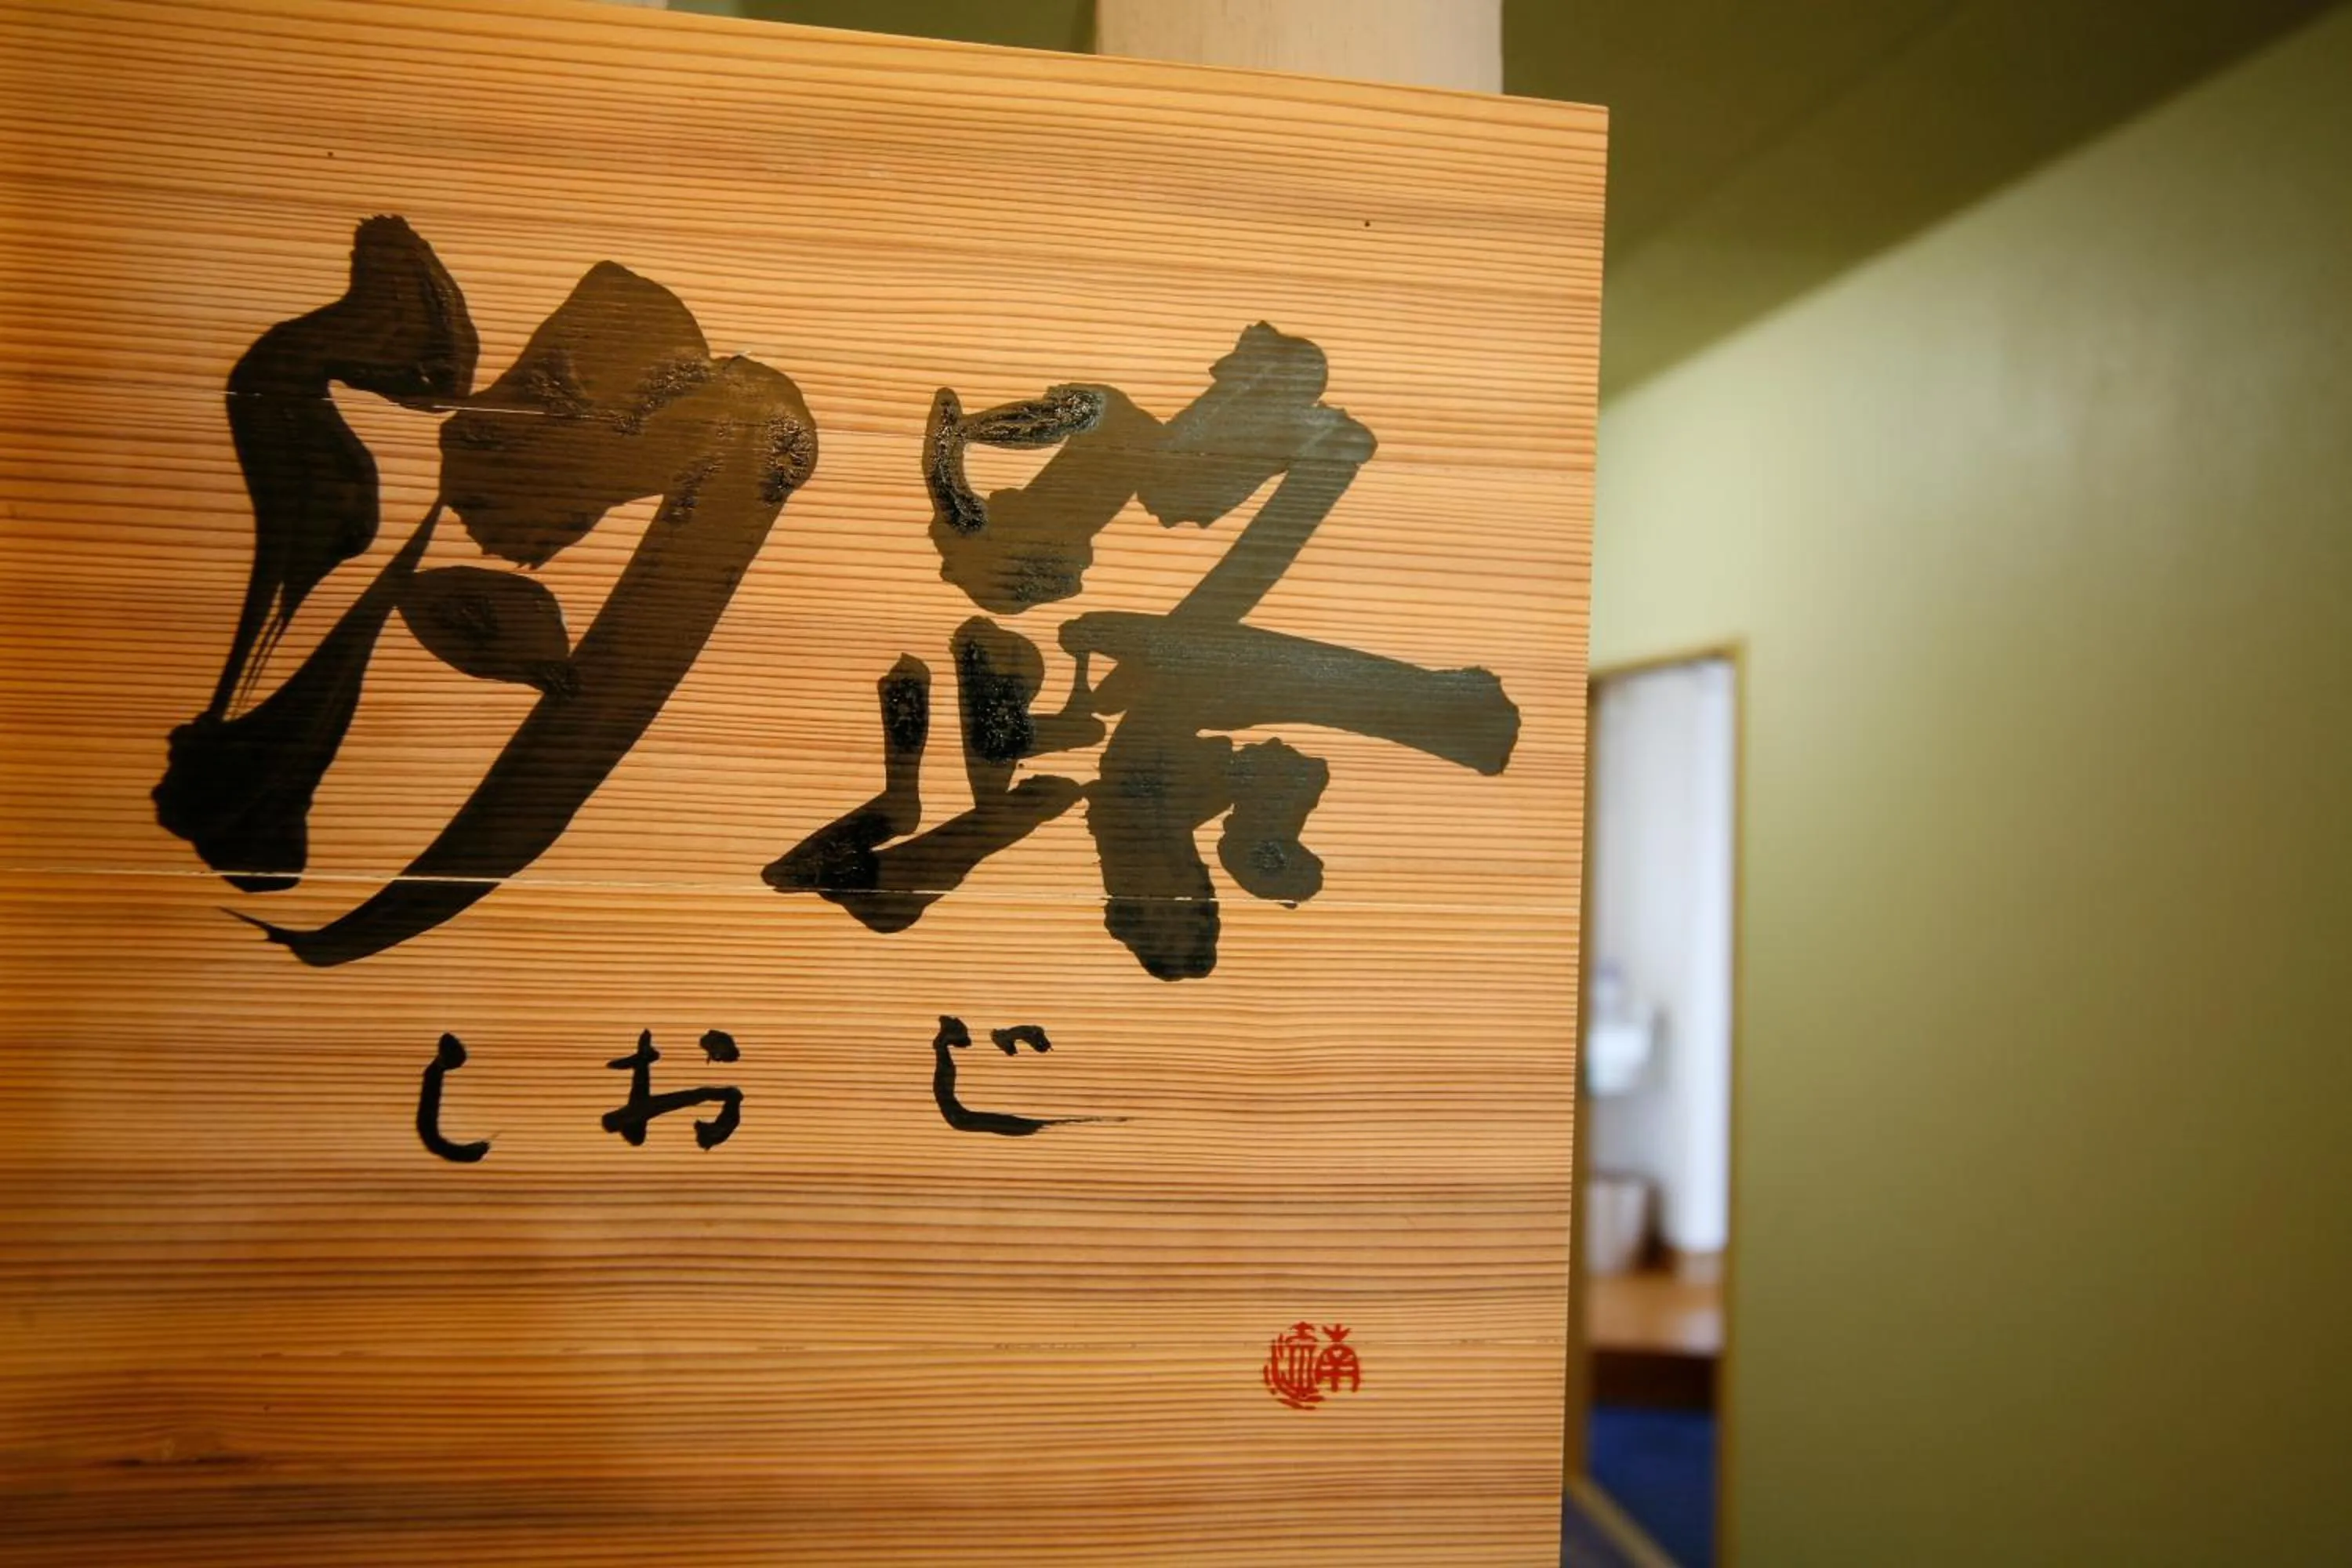 汐路
しおじ